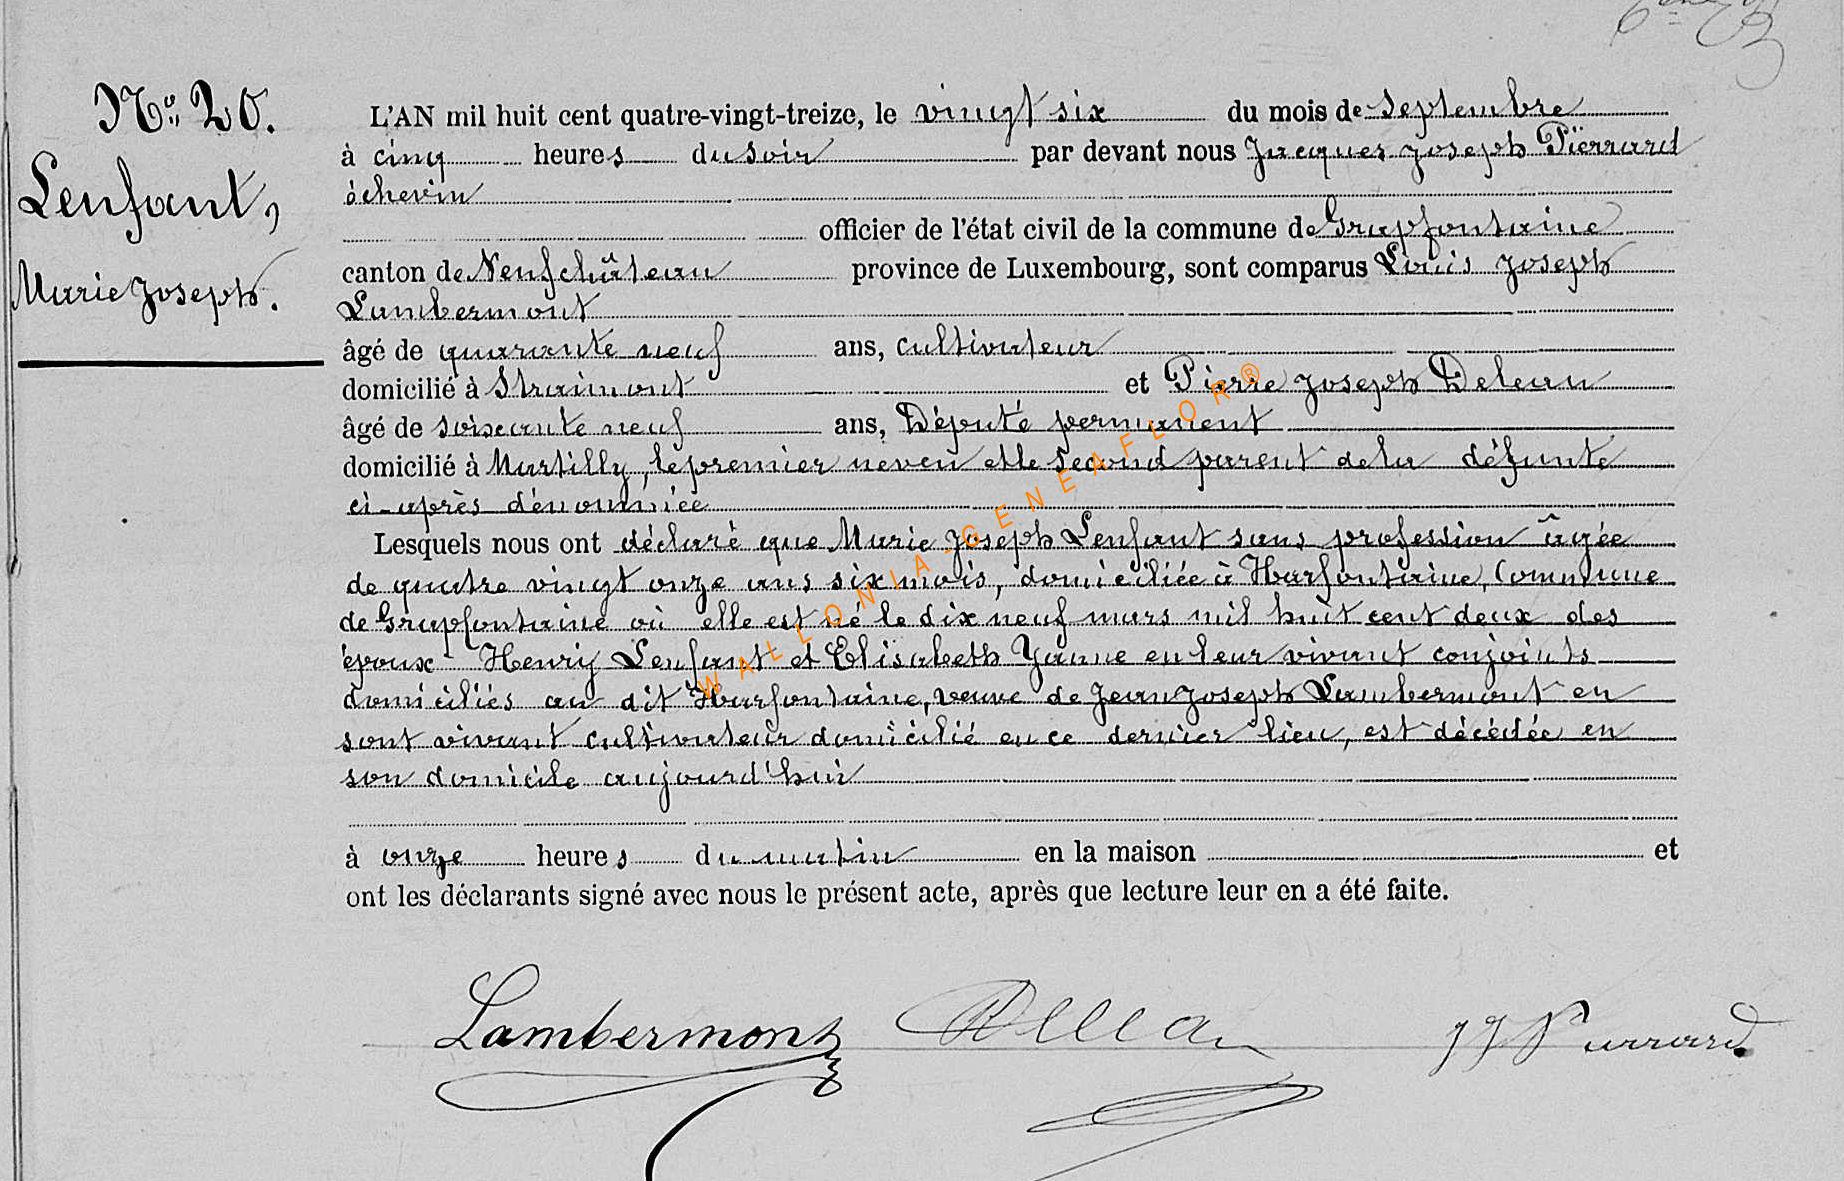 No. 20.
Lenfant,
Marie Joseph.
L'AN mil huit cent quatre-vingt-treize, le vingt six du mois de Septembre
à cinq heures du soir par devant nous Jacques Joseph Pierrard
échevin
officier de l'état civil de la commune de Grapfontaine
canton de Neufchâteau province de Luxembourg, sont comparus Louis Joseph
Lambermont
âgé de quarante neuf ans, cultivateur
domicilié à Straimont et Pierre Joseph Deleau
âgé de soixante neuf ans, Député permanent
domicilié à Martilly, le premier neveu et le second parent de la défunte
ci-après dénommée
Lesquels nous ont déclaré que Marie Joseph Lenfant sans profession âgée
de quatre vingt onze ans six mois, domiciliée à Harfontaine, Commune
de Grapfontaine où elle est né le dix neuf mars mil huit cent deux des
époux Henry Lenfant et Elisabeth Yanne en leur vivant conjoints
domiciliés au dit Harfontaine, veuve de Jean Joseph Lambermont en
sont vivant cultivateur domicilié en ce dernier lieu, est décédée en
son domicile aujourd'hui
à onze heures du matin en la maison et
ont les déclarants signé avec nous le présent acte, après que lecture leur en a été faite.
Lambermont Delean JJ Pierrard
WALLONIA-GENEAFLOR®